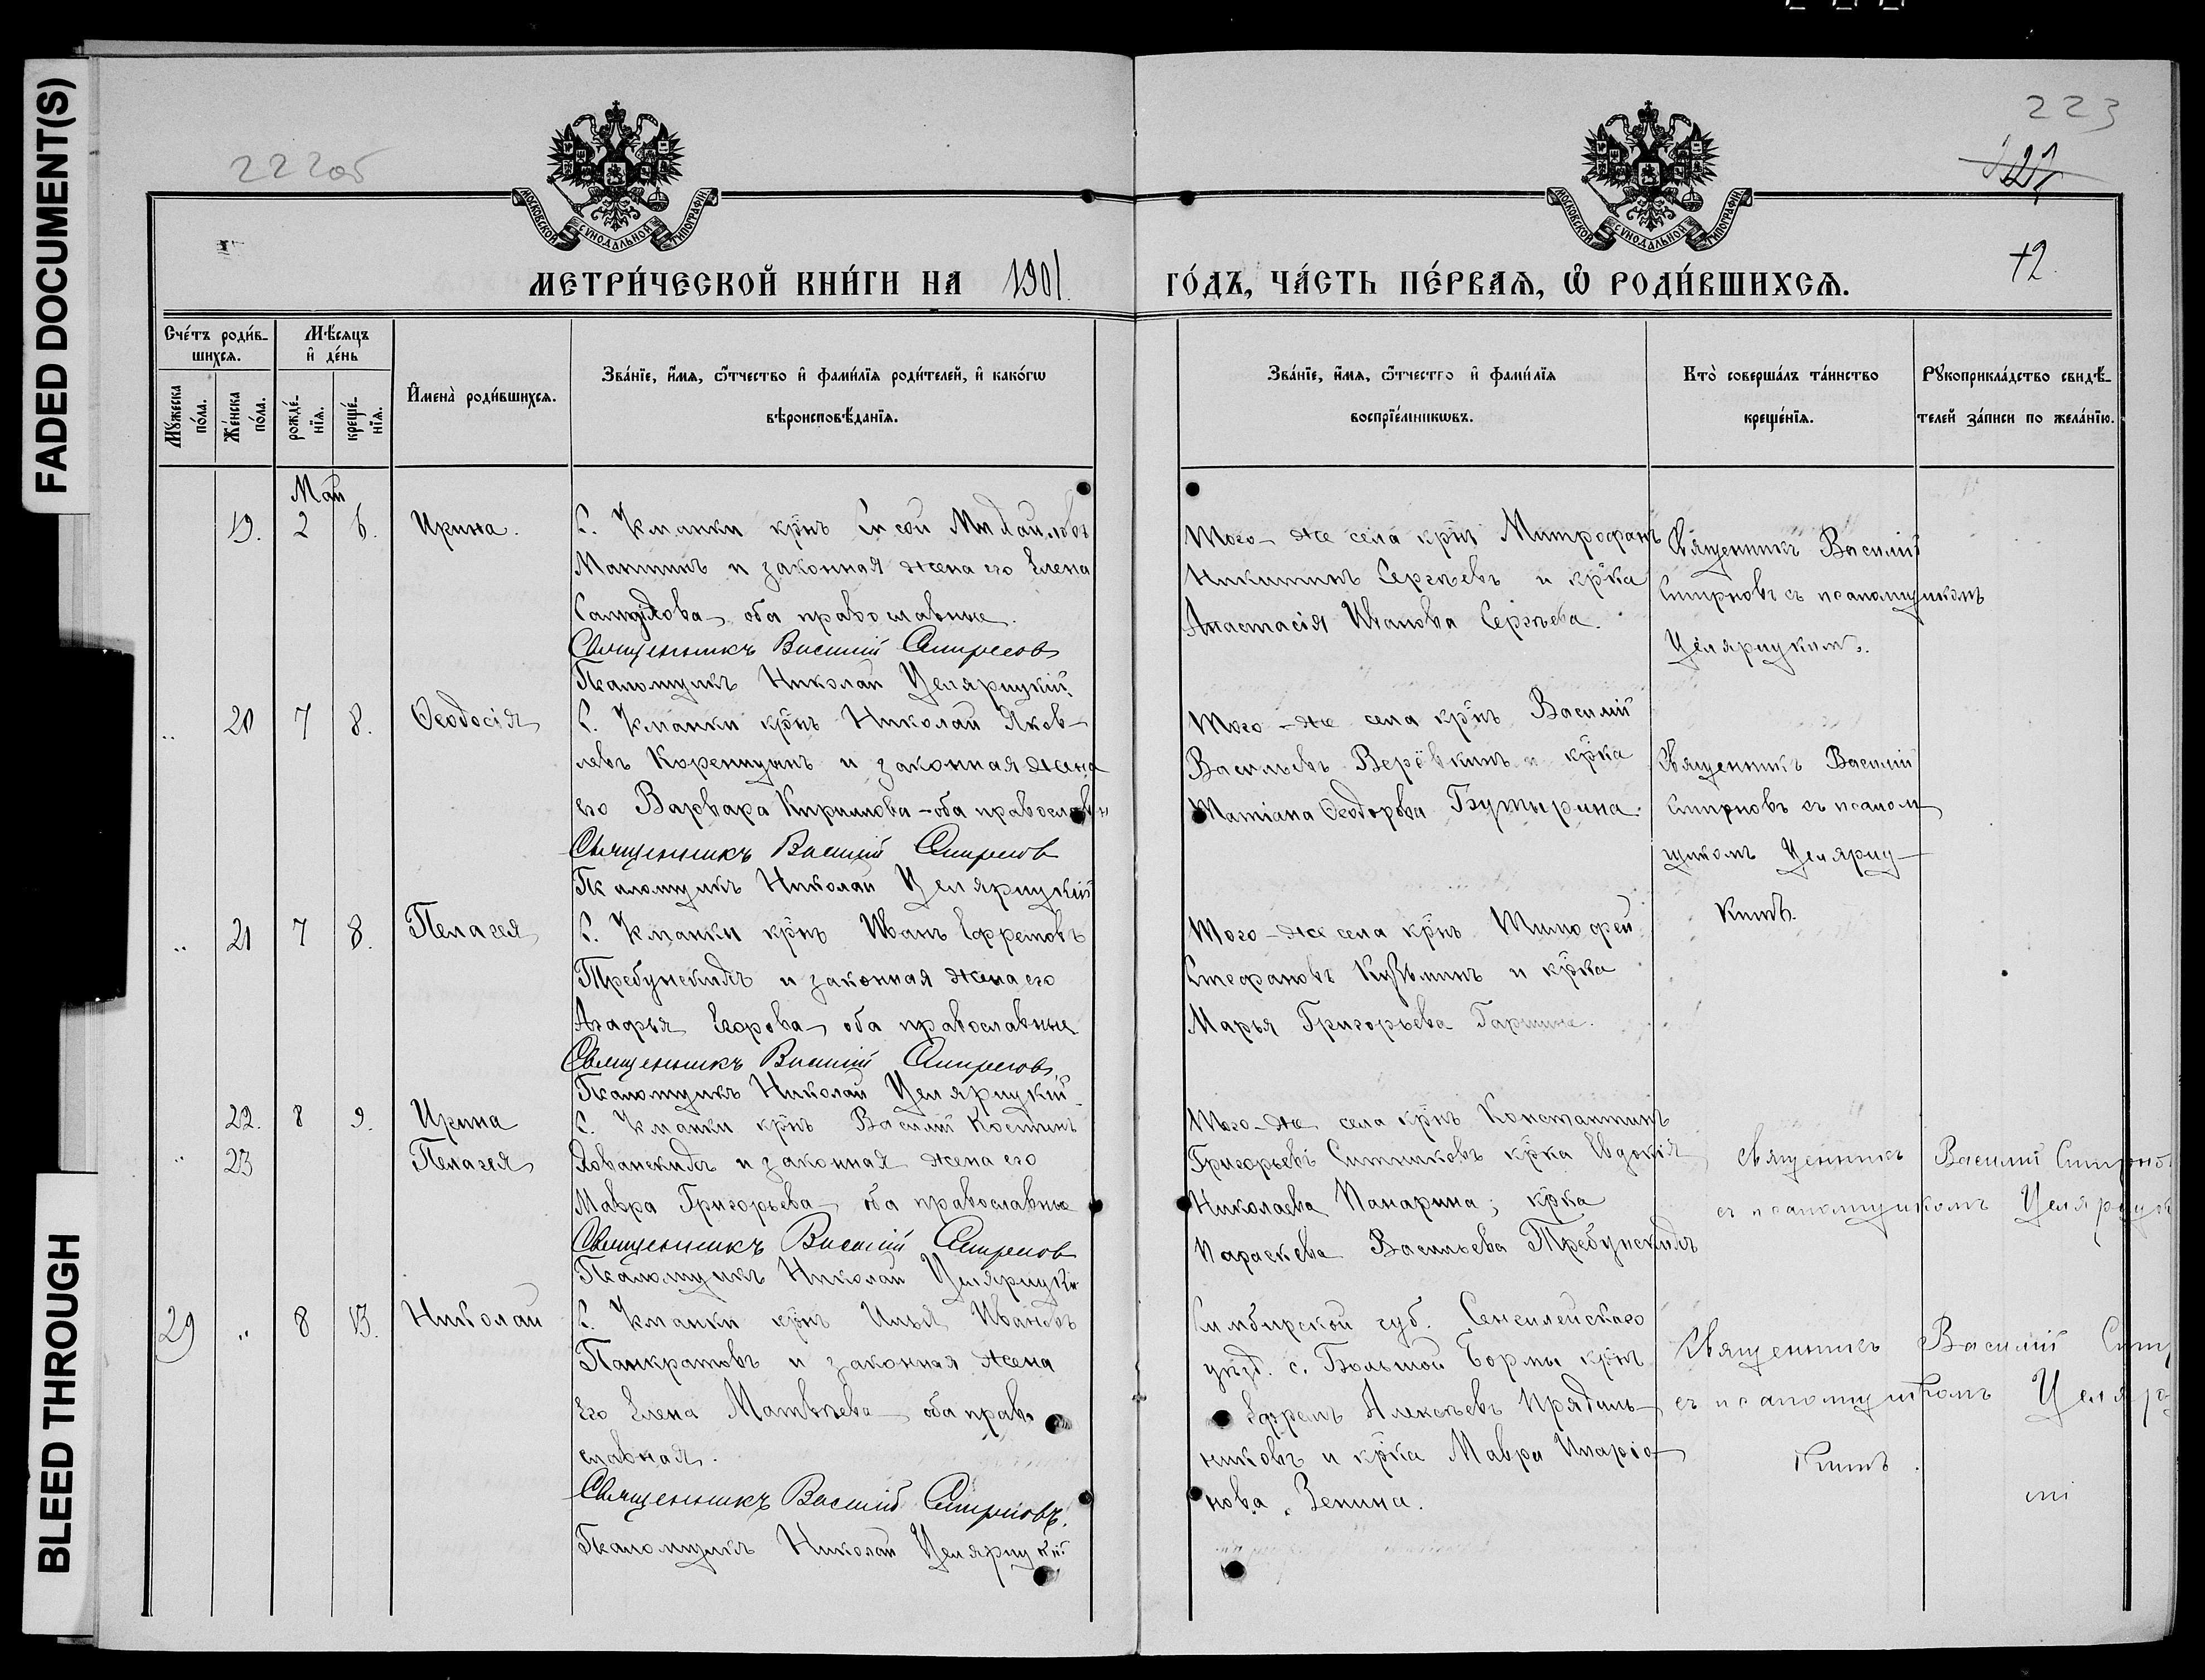 FADED DOCUMENT(S)
BLEED THROUGH
222об
223
12
МОСКОВСКОЙ СУНОДАЛЬНОЙ ТИПОГРАФІИ
МОСКОВСКОЙ СУНОДАЛЬНОЙ ТИПОГРАФІИ
МЕТРИ́ЧЕСКОЙ КНИ́ГИ НА 1901 ГО́ДЪ, ЧА́СТЬ ПЕ́РВАѦ, Ѡ҆ РОДИ́ВШИХСѦ.
Сче́тъ роди́в-
шихсѧ.
Мꙋ́жеска по́ла.
Же́нска по́ла.
Мѣ́сѧцъ
и҆ де́нь
рожде́-
нїѧ.
креще́-
нїѧ.
И҆мена̀ роди́вшихсѧ.
Зва́нїе, и҆́мѧ, ѻ҆́тчество и҆ фами́лїѧ роди́телей, и҆ како́гѡ
вѣроисповѣ́данїѧ.
Зва́нїе, и҆́мѧ, ѻ҆́тчество и҆ фами́лїѧ
воспрїе́мникѡвъ.
Кто̀ соверша́лъ та́инство
креще́нїѧ.
Рꙋкоприкла́дство свидѣ́-
телей за́писи по жела́нїю.
Май
19. 2 6. Ирина.
С. Кманки крнъ Сисой Михайловъ
Маншинъ и законная жена его Елена
Самуйлова, оба православные.
Священникъ Василій Смирновъ
Псаломщикъ Николай Целярицкій.
Того-же села крнъ Митрофанъ
Никитинъ Сергѣевъ и крка
Анастасія Иванова Сергѣева.
Священникъ Василій
Смирновъ съ псаломщикомъ
Целярицкимъ.
20 7 8. Ѳеодосія
С. Кманки крнъ Николай Яков-
левъ Кореницынъ и законная жена
его Варвара Кириллова - оба православн
Священникъ Василій Смирнов
Псаломщикъ Николай Целярицкій
Того-же села крнъ Василій
Васильевъ Верёвкинъ и крка
Татіана Ѳеодорова Бутырина.
Священникъ Василій
Смирновъ съ псалом
щикомъ Целяриц-
кимъ.
21 7 8. Пелагея
С. Кманки крнъ Иванъ Ефремовъ
Требунскихъ и законная жена его
Агафья Егорова, оба православные
Священникъ Василій Смирновъ
Псаломщикъ Николай Целярицкій
Того-же села крнъ Тимофей
Стефановъ Кузьминъ и крка
Марья Григорьева Гаршина.
22. 8 9. Ирина
23 Пелагея
С. Кманки крнъ Василій Костинъ
Хованскихъ и законная жена его
Мавра Григорьева, оба православные
Священникъ Василій Смирнов
Псаломщикъ Николай Целярицкі
Того-же села крнъ Константинъ
Григорьевъ Ситниковъ крка Евдокія
Николаева Панарина; крка
Параскева Васильева Требунскихъ
Священникъ Василій Смирновъ
съ псаломщикомъ Целярицк
29 8 13. Николай
С. Кманки крнъ Илья Ивановъ
Панкратовъ и законная жена
его Елена Матвѣева оба право
славная.
Священникъ Василій Смирновъ.
Псаломщикъ Николай Целярицкій
Симбирской губ. Сенгилейскаго
уѣзд. с. Большой Бормы крнъ
Ефремъ Алексѣевъ Прядиль-
никовъ и крка Мавра Иларіо-
нова Зенина.
Священникъ Василій Смир
съ псаломщикомъ Целяр
кимъ.